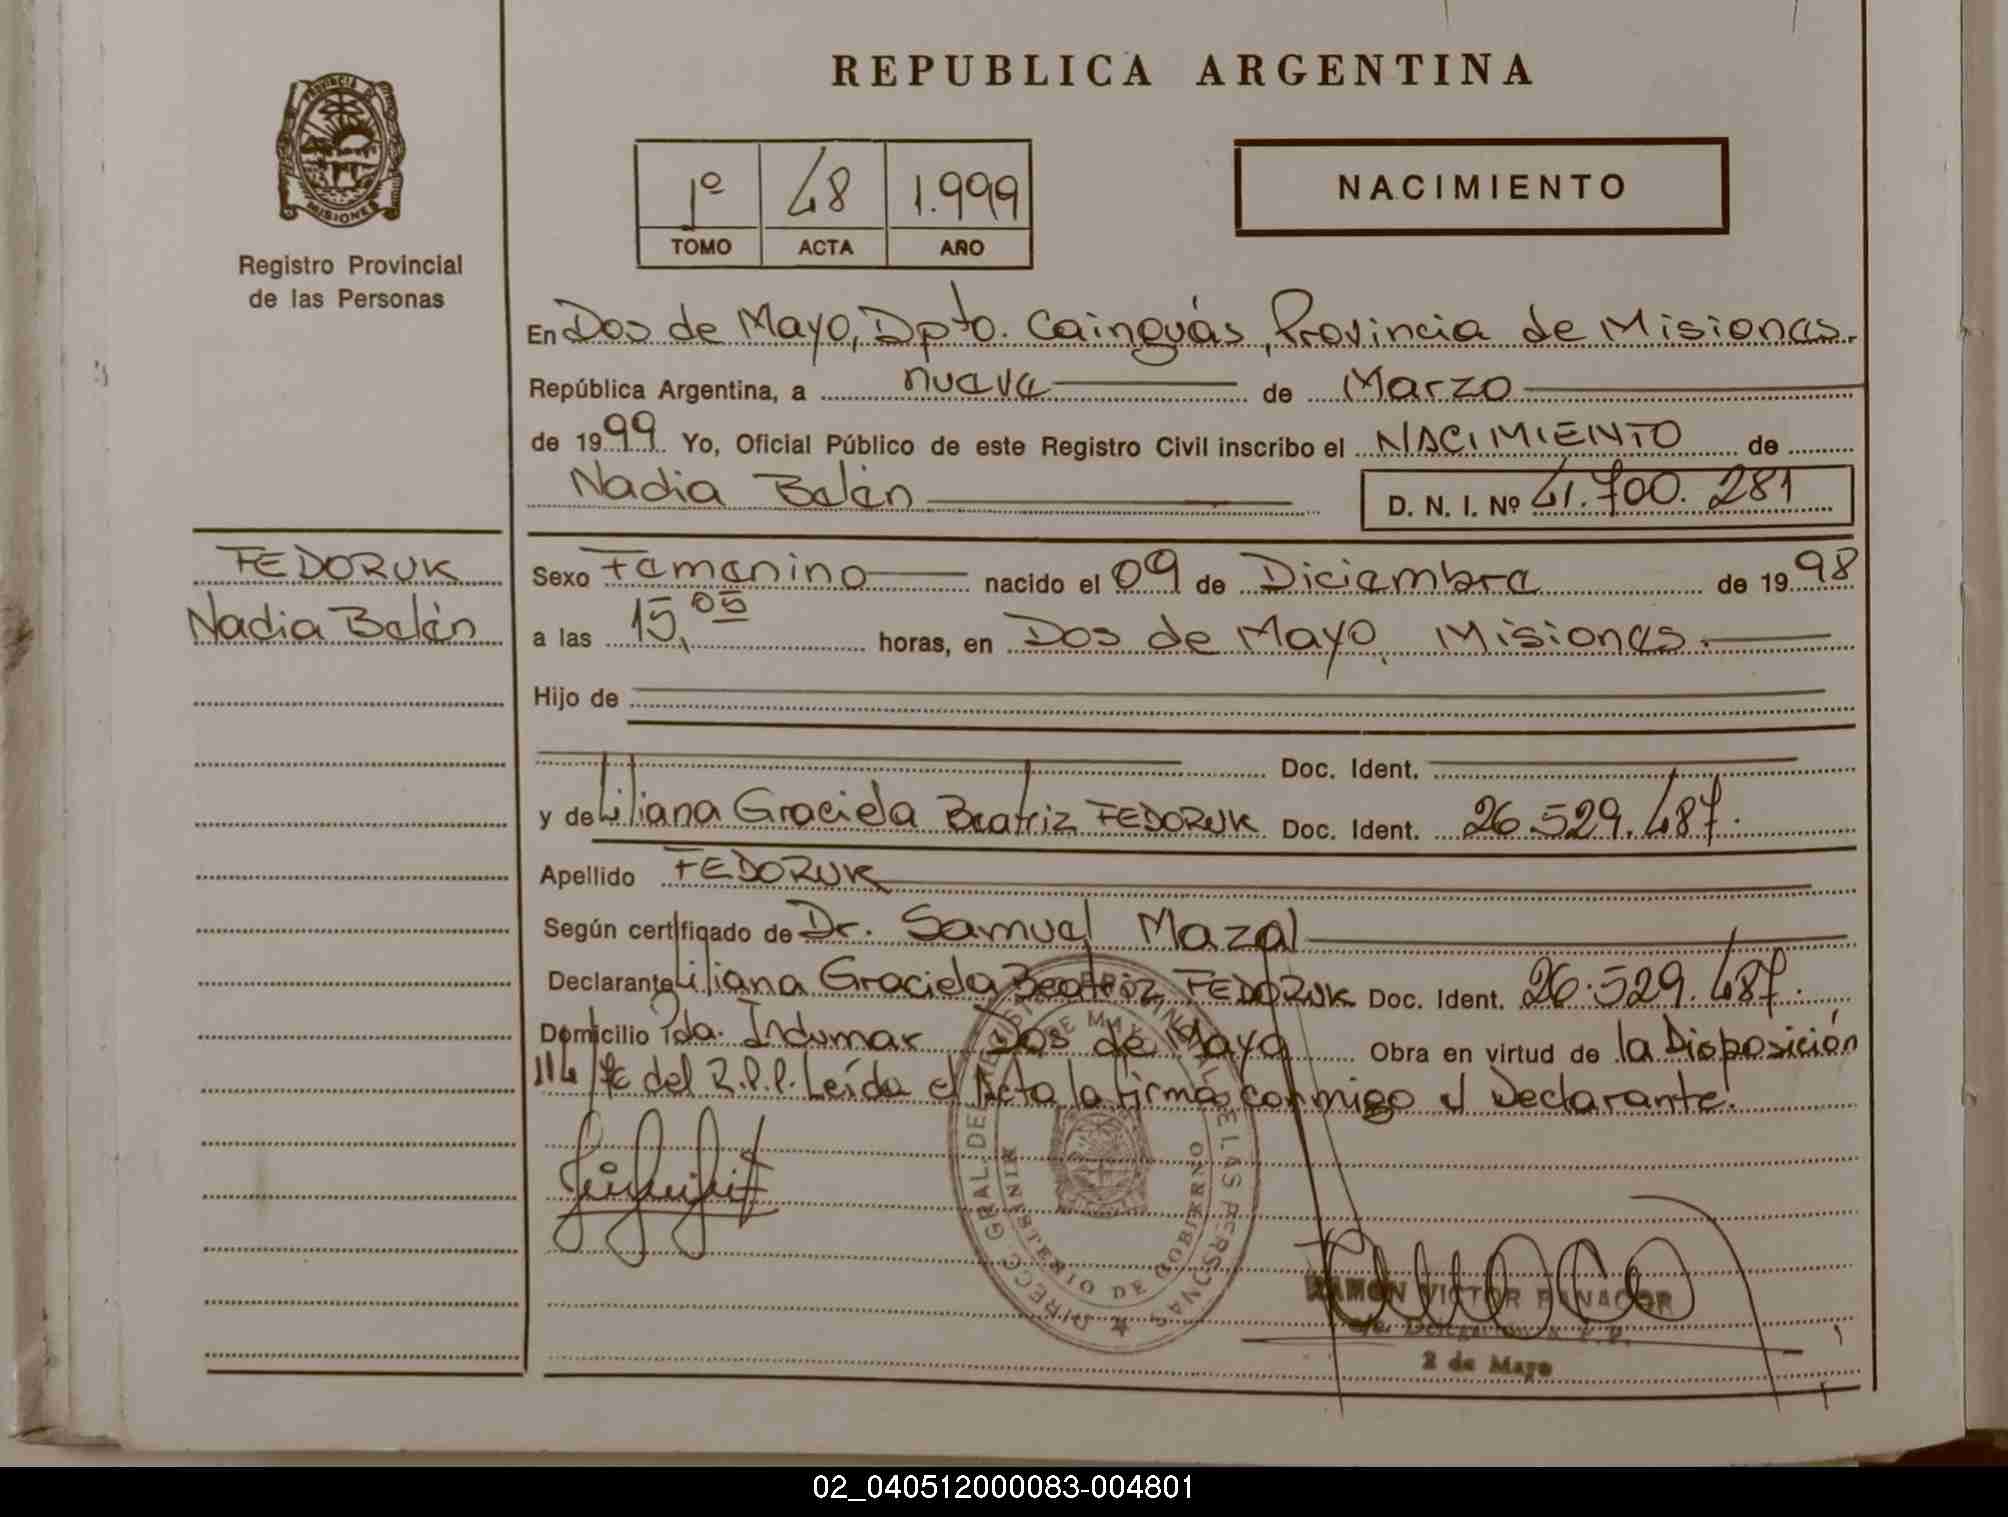 REPUBLICA ARGENTINA
PROVINCIA DE
MISIONES
Registro Provincial
de las Personas
1º 48 1.999
TOMO ACTA AÑO
NACIMIENTO
En Dos de Mayo, Dpto. Cainguás, Provincia de Misiones.
República Argentina, a nueve de Marzo
de 1999 Yo, Oficial Público de este Registro Civil inscribo el NACIMIENTO de
Nadia Belén D. N. I. Nº 41.700.281
FEDORUK
Nadia Belén
Sexo Femenino nacido el 09 de Diciembre de 1998
a las 15,05 horas, en Dos de Mayo, Misiones.
Hijo de
Doc. Ident.
y de Liliana Graciela Beatriz FEDORUK Doc. Ident. 26.529.487.
Apellido FEDORUK
Según certificado de Dr. Samuel Mazal
Declarante Liliana Graciela Beatriz FEDORUK Doc. Ident. 26.529.487.
Domicilio Pda. Indumar Dos de Mayo Obra en virtud de la Disposición
del R.P.P. Leída el Acta la firma conmigo el Declarante.
MINISTERIO DE GOBIERNO
RAMON VICTOR
2 de Mayo
02_040512000083-004801